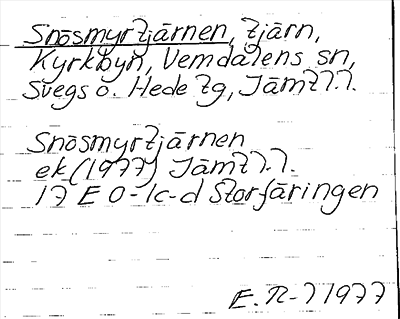 Snösmyrtjärnen, tjärn,
Kyrkbyn, Vemdalens sn,
Svegs o. Hede tg, Jämtl.l.
Snösmyrtjärnen
ek (1977) Jämtl.l.
17 E 0-1c-d Storfäringen
E. N-l 1977